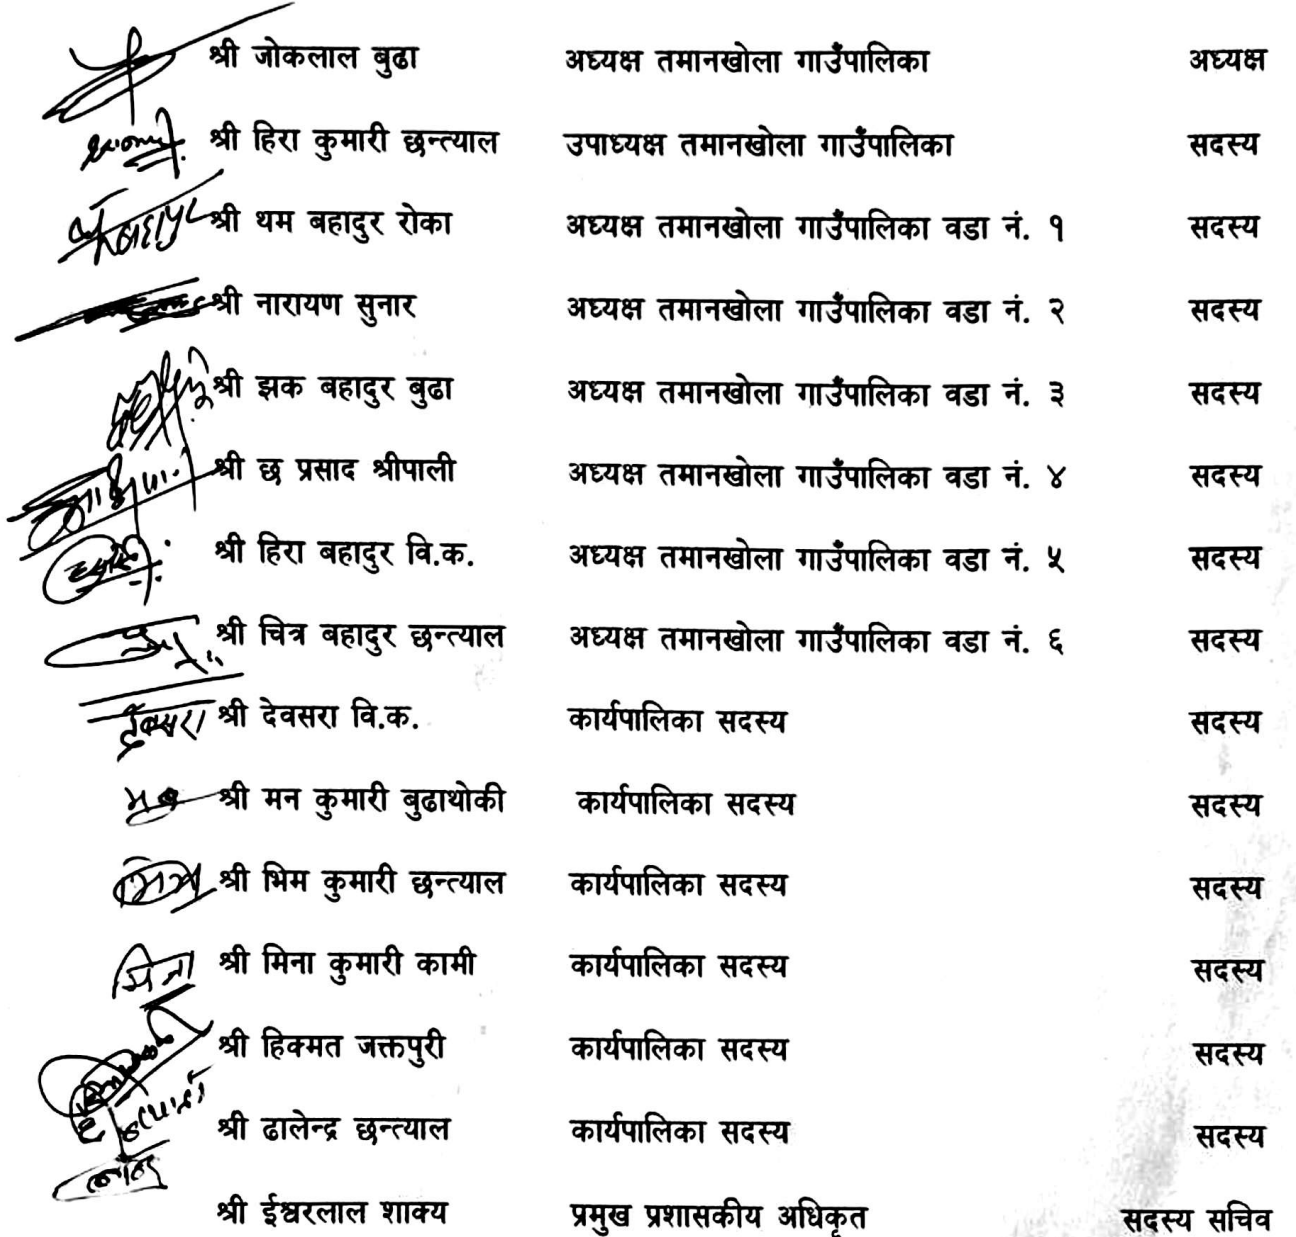 श्री जोकलाल बुढा अध्यक्ष तमानखोला गाउँपालिका अध्यक्ष
श्री हिरा कुमारी छन्त्याल उपाध्यक्ष तमानखोला गाउँपालिका सदस्य
श्री थम बहादुर रोका अध्यक्ष तमानखोला गाउँपालिका वडा नं. १ सदस्य
श्री नारायण सुनार अध्यक्ष तमानखोला गाउँपालिका वडा नं. २ सदस्य
श्री झक बहादुर बुढा अध्यक्ष तमानखोला गाउँपालिका वडा नं. ३ सदस्य
श्री छ प्रसाद श्रीपाली अध्यक्ष तमानखोला गाउँपालिका वडा नं. ४ सदस्य
श्री हिरा बहादुर वि.क. अध्यक्ष तमानखोला गाउँपालिका वडा नं. ५ सदस्य
श्री चित्र बहादुर छन्त्याल अध्यक्ष तमानखोला गाउँपालिका वडा नं. ६ सदस्य
देवसरा श्री देवसरा वि.क. कार्यपालिका सदस्य सदस्य
श्री मन कुमारी बुढाथोकी कार्यपालिका सदस्य सदस्य
श्री भिम कुमारी छन्त्याल कार्यपालिका सदस्य सदस्य
मिना श्री मिना कुमारी कामी कार्यपालिका सदस्य सदस्य
श्री हिक्मत जक्तपुरी कार्यपालिका सदस्य सदस्य
श्री ढालेन्द्र छन्त्याल कार्यपालिका सदस्य सदस्य
श्री ईश्वरलाल शाक्य प्रमुख प्रशासकीय अधिकृत सदस्य सचिव